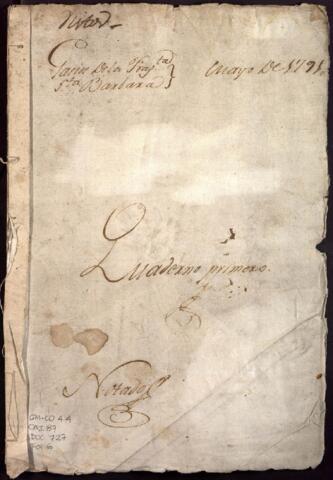 Gastos De la Frag.ta
S.ta Barbara
Mayo De 1791
Quaderno primero.
Notado
GM-CO 4.4
CAJ 87
DOC 727
Fol 6